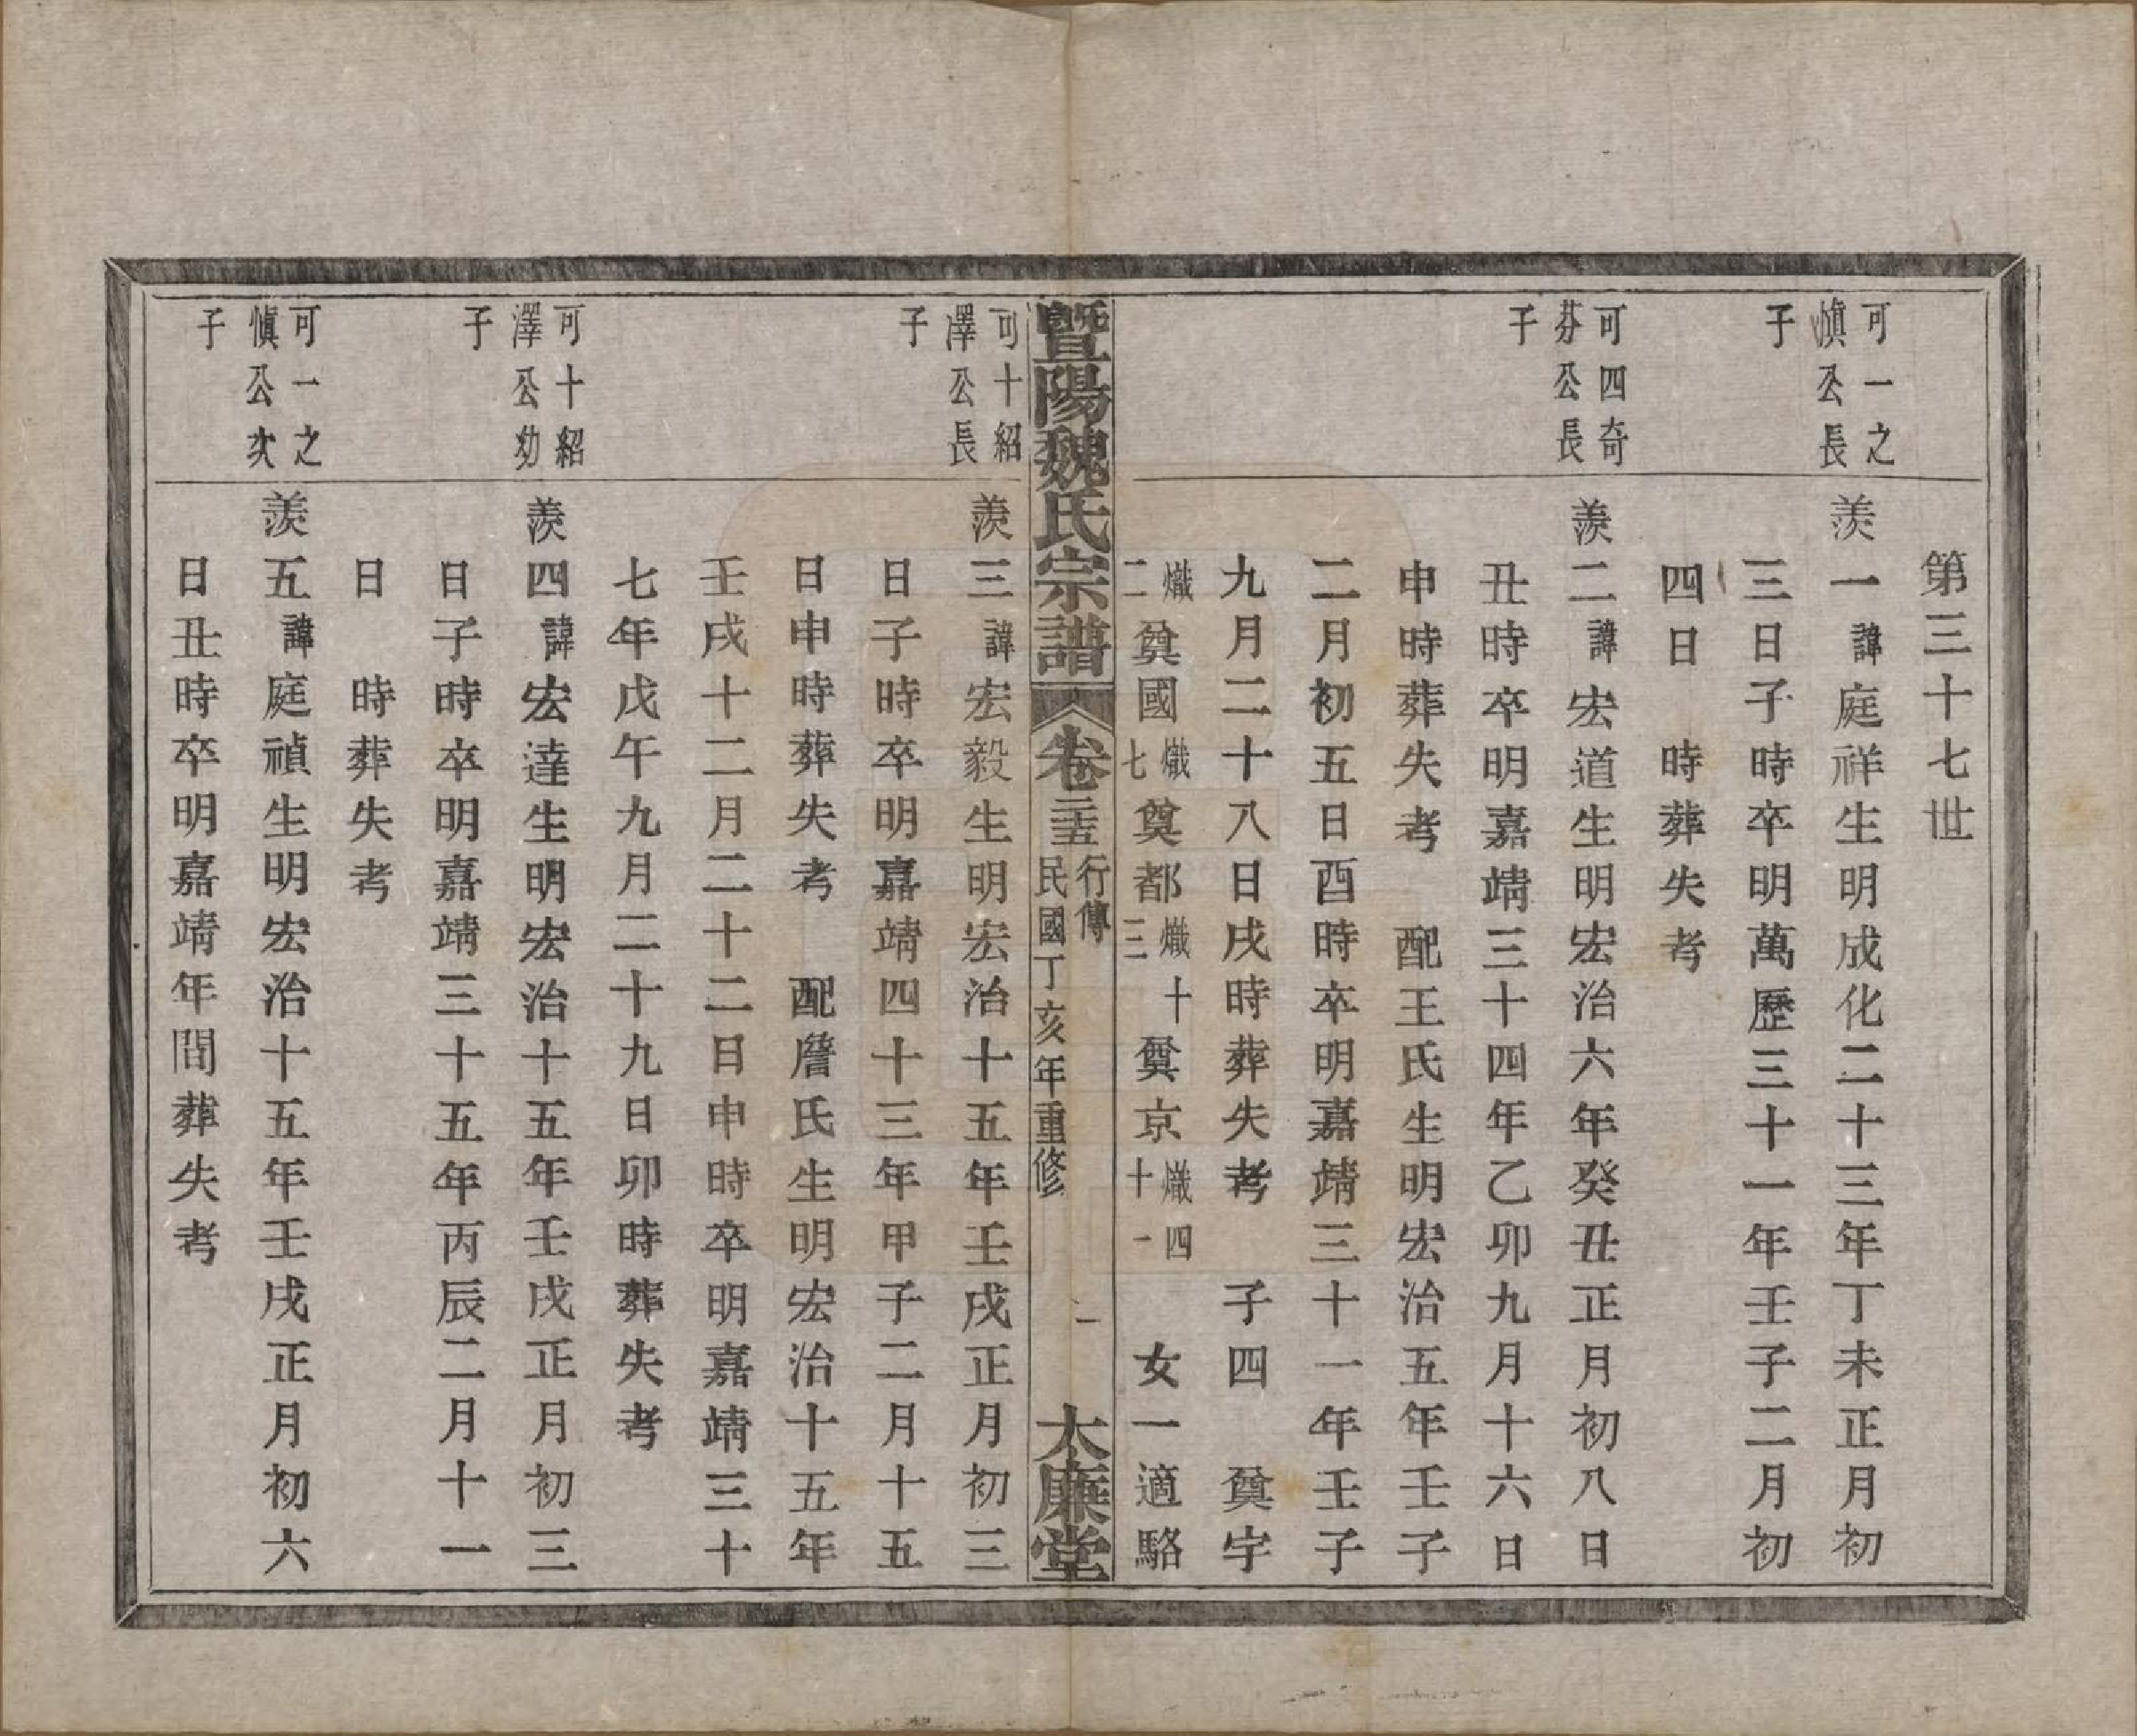 第三十七世
可一之
慎公長
子
羨一諱庭祥生明成化二十三年丁未正月初
三日子時卒明萬歷三十一年壬子二月初
四日 時葬失考
可四奇
芬公長
子
羨二諱宏道生明宏治六年癸丑正月初八日
丑時卒明嘉靖三十四年乙卯九月十六日
申時葬失考 配王氏生明宏治五年壬子
二月初五日酉時卒明嘉靖三十一年壬子
九月二十八日戌時葬失考 子四 奠宇
熾二 奠國熾七 奠都熾三 十奠京熾十四一 女一適駱
暨陽魏氏宗譜 卷二十五 行傳 民國丁亥年重修 一 大廉堂
可十紹
澤公長
子
羨三諱宏毅生明宏治十五年壬戌正月初三
日子時卒明嘉靖四十三年甲子二月十五
日申時葬失考 配詹氏生明宏治十五年
壬戌十二月二十二日申時卒明嘉靖三十
七年戊午九月二十九日卯時葬失考
可十紹
澤公幼
子
羨四諱宏達生明宏治十五年壬戌正月初三
日子時卒明嘉靖三十五年丙辰二月十一
日 時葬失考
可一之
慎公次
子
羨五諱庭禎生明宏治十五年壬戌正月初六
日丑時卒明嘉靖年間葬失考